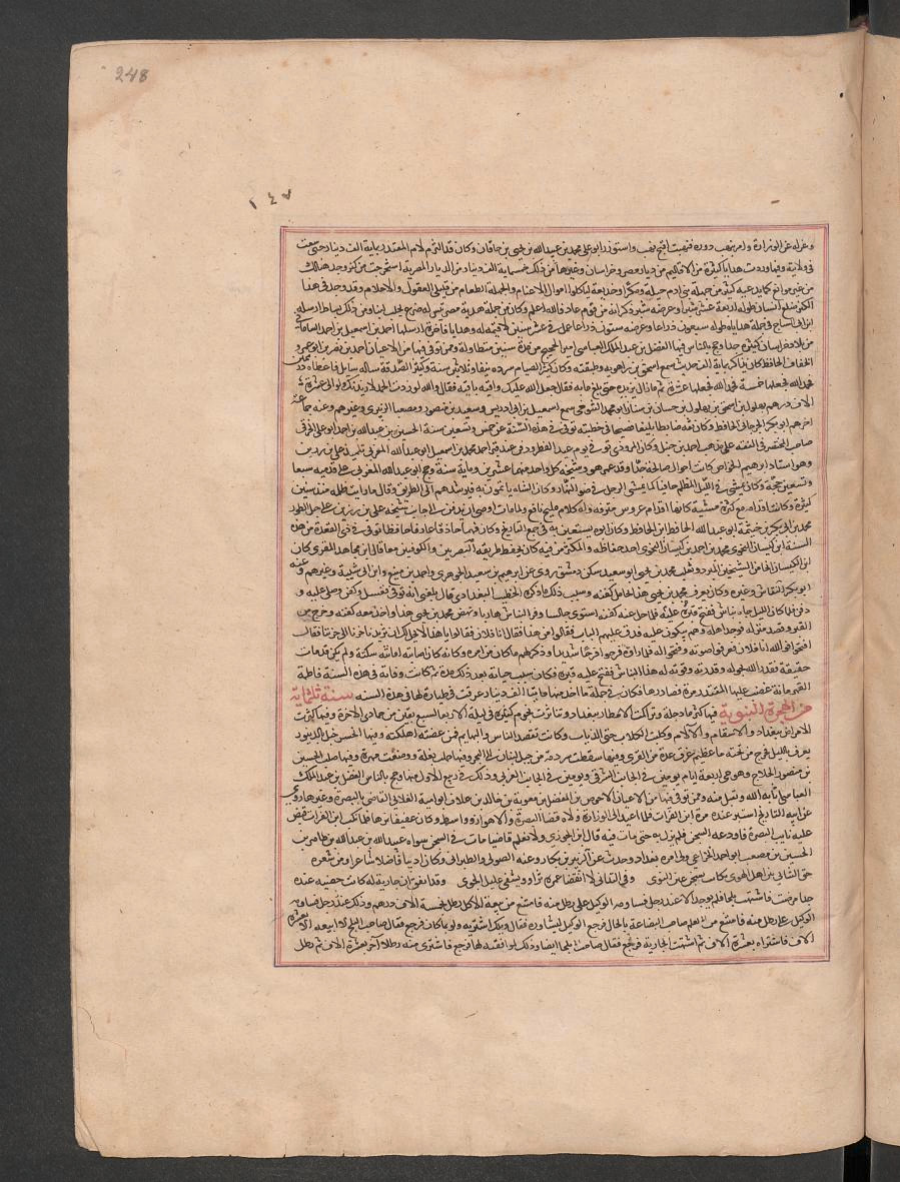 248
٢٤٧
وعزله عن الوزارة وامر بنهب دوره فنهبت اقبح نهب واستوزر ابو علي محمد بن عبيد الله بن يحيى بن خاقان وكان قد التزم لام المعتضد بماية الف دينار حتى سعت
في ولايته وفيها وردت هدايا كثيرة من الاقاليم من ديار مصر وخراسان وغيرها من ذلك خمسماية الف دينار من الديار المصرية استخرجت من كنز وجد هنالك
من غير موانع كما يدعيه كثير من جهلة بني ادم حيلة ومكرا وخديعة لياكلوا اموال الاغشام والجهلة الطغام من قليلي العقول والاحلام وقد وجد في هذا
الكنز ضلع انسان طوله اربعة عشر شبرا وعرضه شبر وذكر انه من قوم عاد فالله اعلم وكان من جملة هدية مصر تيس له ضرع يحلب لبنا ومن ذلك بساط ارسله
ابن ابي الساج في جملة هداياه طوله سبعون ذراعا وعرضه ستون ذراعا عمل في عشر سنين لا قيمة له وهدايا فاخرة ارسلها احمد بن اسمعيل بن احمد الساماني
من بلاد خراسان كثيرة جدا وحج بالناس فيها الفضل بن عبد الملك العباسي امير الحجيج من مدة سنين متطاولة وممن توفي فيها من الاعيان احمد بن نصر بن ابو عمرو
الخفاف الحافظ كان يذاكر بماية الف حديث سمع اسحق بن راهويه وطبقته وكان كثير الصيام سرده نيفا وثلاثين سنة وكثير الصدقة ساله سايل فاعطاه درهمين
فحمد الله فجعلها خمسة فحمد الله فجعلها عشرة ثم ما زال يزيده حتى بلغ ماية فقال جعل الله عليك واقية باقية فقال والله لو زدت الحمد لازيدنك ولو الى عشرة
الاف درهم بهلول بن اسحق بن بهلول بن حسان بن سنان ابو محمد التنوخي سمع اسمعيل بن ابي اويس وسعيد بن منصور ومصعبا الزبيري وغيرهم وعنه جماعة
اخرهم ابو بكر الجرجاني الحافظ وكان ثقة ضابطا بليغا فصيحا في خطبته توفي في هذه السنة عن خمس وتسعين سنة الحسين بن عبد الله بن احمد ابو علي الخرقي
صاحب المختصر في الفقه على مذهب احمد بن حنبل وكان المروذي توفي يوم عيد الفطر ودفن عند قبر احمد محمد بن اسمعيل ابو عبد الله المغربي تلميذ علي بن رزين
وهو استاذ ابراهيم الخواص كانت احواله صالحة جدا وقد عمر هو وشيخه كل واحد منهما عشرين وماية سنة وحج ابو عبد الله المغربي على قدميه سبعا
وتسعين حجة وكان يمشي في الليل المظلم حافيا كما يمشي الرجل في ضوء النهار وكان المشاه ياتمون به فيرشدهم الى الطريق وقال ما رايت ظلمة منذ سنين
كثيرة وكانت اقدامه مع كثرة مشيه كانها اقدام عروس مترفة وله كلام مليح نافع ولما مات اوصى ان يدفن الى جانب شيخه علي بن رزين على جبل الطور
محمد بن ابي بكر بن خيثمة ابو عبد الله الحافظ ابن الحافظ وكان ابوه يستعين به في جمع التاريخ وكان فهما حاذقا عارفا حافظا توفي في ذي القعدة من هذه
السنة ابن كيسان النحوي محمد بن احمد بن كيسان النحوي احد حفاظه والمكثرين فيه كان يحفظ طريقة البصريين والكوفيين معا قال ابن مجاهد المقري كان
ابن كيسان انحى من الشيخين المبرد وثعلب محمد بن يحيى ابو سعيد سكن دمشق روى عن ابرهيم بن سعيد الجوهري واحمد بن منيع وابن ابي شيبة وغيرهم وعنه
ابو بكر النقاش وغيره وكان يعرف محمد بن يحيى هذا بحامل كفنه وسبب ذلك ما ذكره الخطيب البغدادي قال بلغني انه توفي فغسل وكفن وصلي عليه و
دفن فلما كان الليل جاء نباش ففتح عليه قبره فلما حل عنه كفنه استوى جالسا وفر النباش هاربا ونهض محمد بن يحيى هذا واخذ معه كفنه وخرج من
القبر وقصد منزله فوجد اهله وهم يبكون عليه فدق عليهم الباب فقالوا من هذا فقال انا فلان فقالوا يا هذا لا يحل لك ان تزيدنا حزنا الى حزننا فقال
افتحوا فوالله انا فلان فعرفوا صوته وفتحوا له فلما راوه فرحوا فرحا شديدا وذكر لهم ما كان من امره وكانه كان اصابته سكتة ولم يكن قد مات
حقيقة فقدر الله بحوله وقدرته وقوته له هذا النباش ففتح عليه قبره فكان سبب حياته بعد ذلك مدة ثم كانت وفاته في هذه السنة فاطمة
القهرمانة غضب عليها المقتدر مرة فصادرها فكان في جملة ما اخذ منها مايتا الف دينار غرقت في طيارة لها في هذه السنه سنة ثلثماية
من الهجرة النبوية فيها كثر ماء دجلة وتراكمت الامطار ببغداد وتناثرت نجوم كثيرة في ليلة الاربعا لسبع بقين من جمادى الاخرة وفيها كثرت
الامراض ببغداد والاسقام والالام وكلبت الكلاب حتى الذياب وكانت تقصد الناس والبهايم فمن عضته اهلكته وفيها انحسر جبل بالدينور
يعرف بالتل فخرج من تحته ماء عظيم غرق عدة من القرى وفيها سقطت شرذمة من جبل لبنان الى البحر وفيها حملت بغلة ووضعت مهرة وفيها صلب الحسين
بن منصور الحلاج وهو حي اربعة ايام يومين في الجانب الشرقي ويومين في الجانب الغربي وذلك في ربيع الاول منها وحج بالناس الفضل بن عبد الملك
العباسي اثابه الله وتقبل منه وممن توفي فيها من الاعيان الاحوص بن المفضل بن معوية بن خالد بن غلاب ابو امية الغلابي القاضي بالبصرة وغيرها روى
عن ابيه التاريخ استتر عنده مرة ابن الفرات فلما اعيد الى الوزارة ولاه قضا البصرة والاهواز وواسط وكان عفيفا نزها فلما نكب ابن الفرات قبض
عليه نايب البصرة فاودعه السجن فلم يزل به حتى مات فيه قال ابن الجوزي ولا نعلم قاضيا مات في السجن سواه عبيد الله بن عبد الله بن طاهر بن
الحسين بن مصعب ابو احمد الخزاعي ولي امرة بغداد وحدث عن الزبير بن بكار وعنه الصولي والطبراني وكان اديبا فاضلا شاعرا ومن شعره
حق التنائي بين اهل الهوى تكاتب يسخن عين النوى وفي التداني لا انقضا عمره تزاور يشفي غليل الجوى وقد اتفق ان جارية له كانت حظية عنده
جدا مرضت فاشتهت ثلجا فلم يوجد الا عند رجل فساومه الوكيل على رطل منه فامتنع من بيعه الا كل رطل بخمسة الاف درهم وذكر عند رجل فساومه
الوكيل على رطل منه فامتنع من لعلم صاحب البضاعة بالحال فرجع الوكيل ليشاوره فقال ويحك اشتريه ولو بما كان فرجع فقال صاحب الثلج لا ابيعه الا بعشرة
الاف فاشتراه بعشرة الاف ثم اشتهت الجارية فرجع فقال صاحب الثلج ايضا وذلك لموافقته لها فرجع فاشترى منه رطلا اخر بعشرة الاف ثم رطل